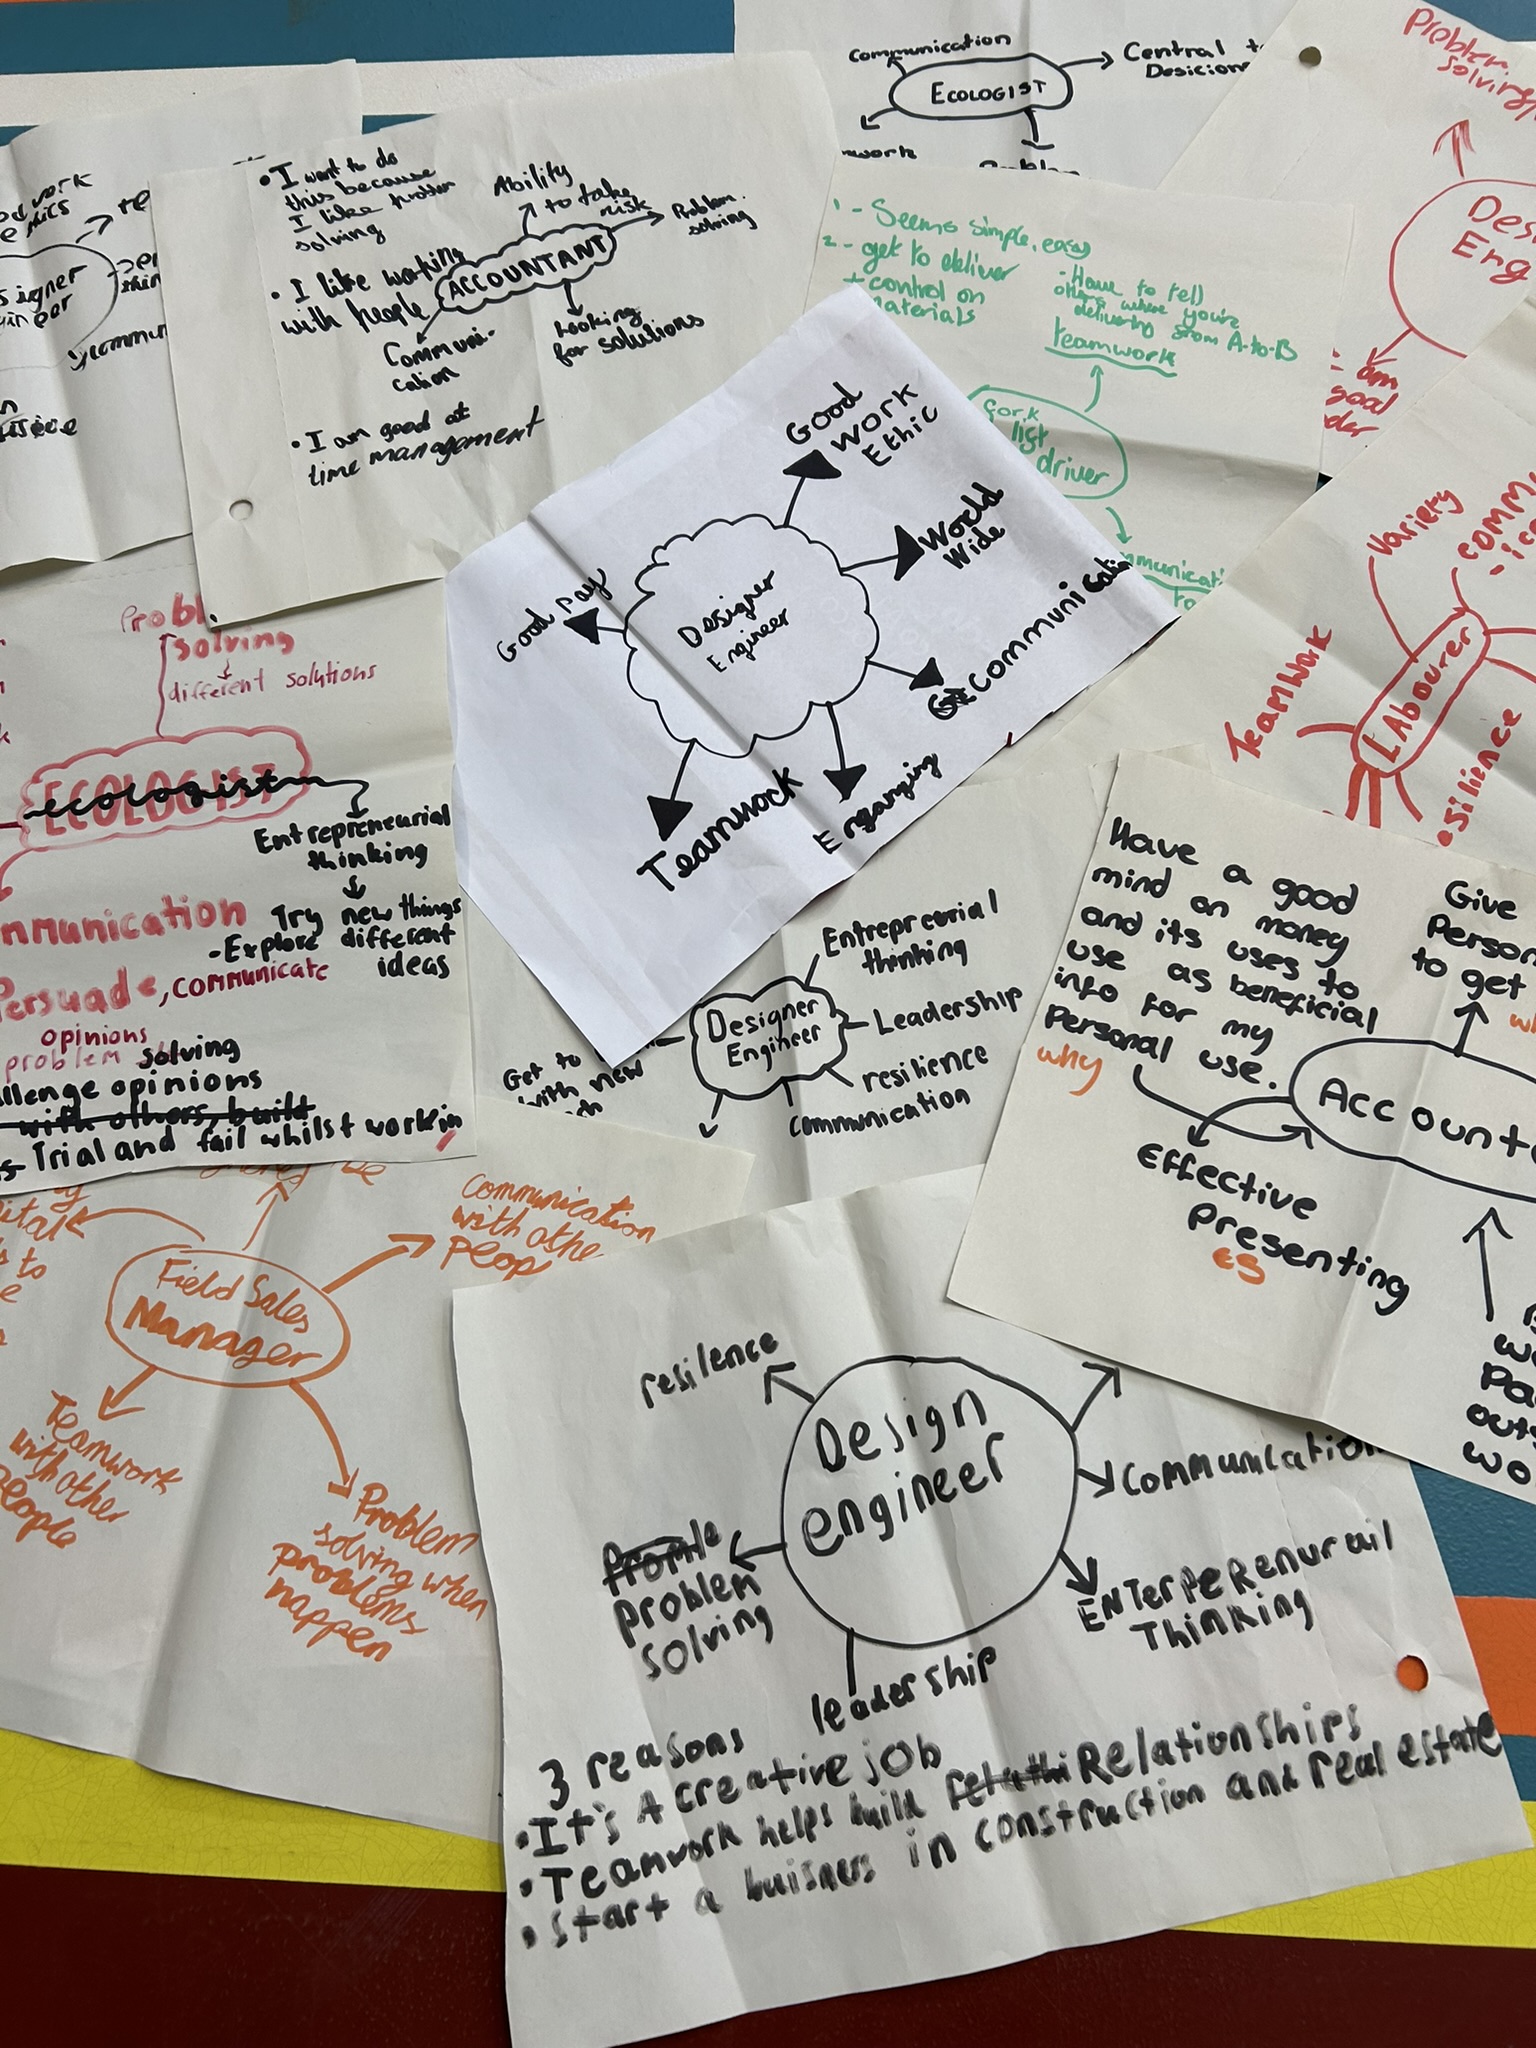 Communication
ECOLOGIST
Central
Desicion
work
Problem
solving
• I want to do
this because
I like problem
solving
• I like working
with people
• I am good at
time management
ACCOUNTANT
Ability
to take
risk
Problem
solving
Looking
for solutions
Communi-
cation
1 - Seems simple, easy
2 - get to deliver
+ control on
materials
- Have to tell
others where you're
delivering from A-to-B
teamwork
fork
list
driver
am
good
Variety
Teamwork
Labourer
esilience
Designer
Engineer
Good
Work
Ethic
World
Wide
Communication
Enganging
Teamwork
Good pay
solving
different solutions
ECOLOGIST
ecologist
Entrepreneurial
thinking
Try new things
- Explore different
ideas
mmunication
Persuade, communicate
opinions
problem solving
allenge opinions
with others, build
Trial and fail whilst workin
Designer
Engineer
Entreprerial
thinking
Leadership
resilience
communication
Get to
with new
Have a good
mind on money
and its uses to
use as beneficial
info for my
Personal use.
why
Give
Person
to get
Accounta
Effective
Presenting
ES
Field Sales
Manager
Communication
with othe
Peop
Teamwork
with other
People
Problem
solving when
problems
happen
Design
engineer
resilence
Communication
ENTerperenurail
Thinking
leadership
problem
solving
3 reasons
• It's A creative job
• Teamwork helps build Relationships
• Start a buisness in construction and real estate